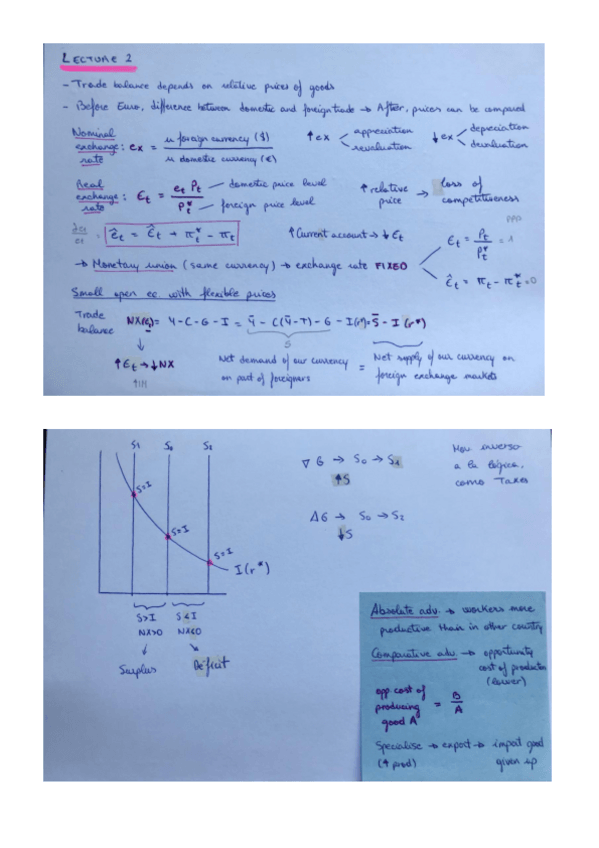 LECTURE 2
- Trade balance depends on relative prices of goods
- Before Euro, difference between domestic and foreign trade → After, prices can be compared
Nominal exchange rate : ex = u foreign currency ($) / u domestic currency (€)
↑ ex < appreciation revaluation
↓ ex < depreciation devaluation
Real exchange rate : Ɛt = et Pt / Pt* — domestic price level — foreign price level
↑ relative price → Loss of competitiveness
êt = Ɛ̂t + πt* - πt
↑ Current account → ↓ Ɛt
PPP
→ Monetary union (same currency) → exchange rate FIXED
Ɛt = Pt / Pt* = 1
Ɛ̂t = πt - πt* = 0
Small open ec. with flexible prices
Trade balance NX(Ɛt) = Y - C - G - I = Ȳ - C(Ȳ - T) - G - I(r*) = S̄ - I(r*)
S
↑ Ɛt → ↓ NX
↑ IM
Net demand of our currency on part of foreigners = Net supply of our currency on foreign exchange markets
S1 S0 S2
S=I
S=I
S=I
I(r*)
S>I S<I
NX>0 NX<0
Surplus Deficit
∇G → S0 → S1
↑S
ΔG → S0 → S2
↓S
inverso
a la lógica,
como Taxes
Absolute adv. → workers more
productive than in other country
Comparative adv. → opportunity
cost of production
(lower)
opp cost of producing good A = B / A
Specialise → export → import good
(↑ prod) given up